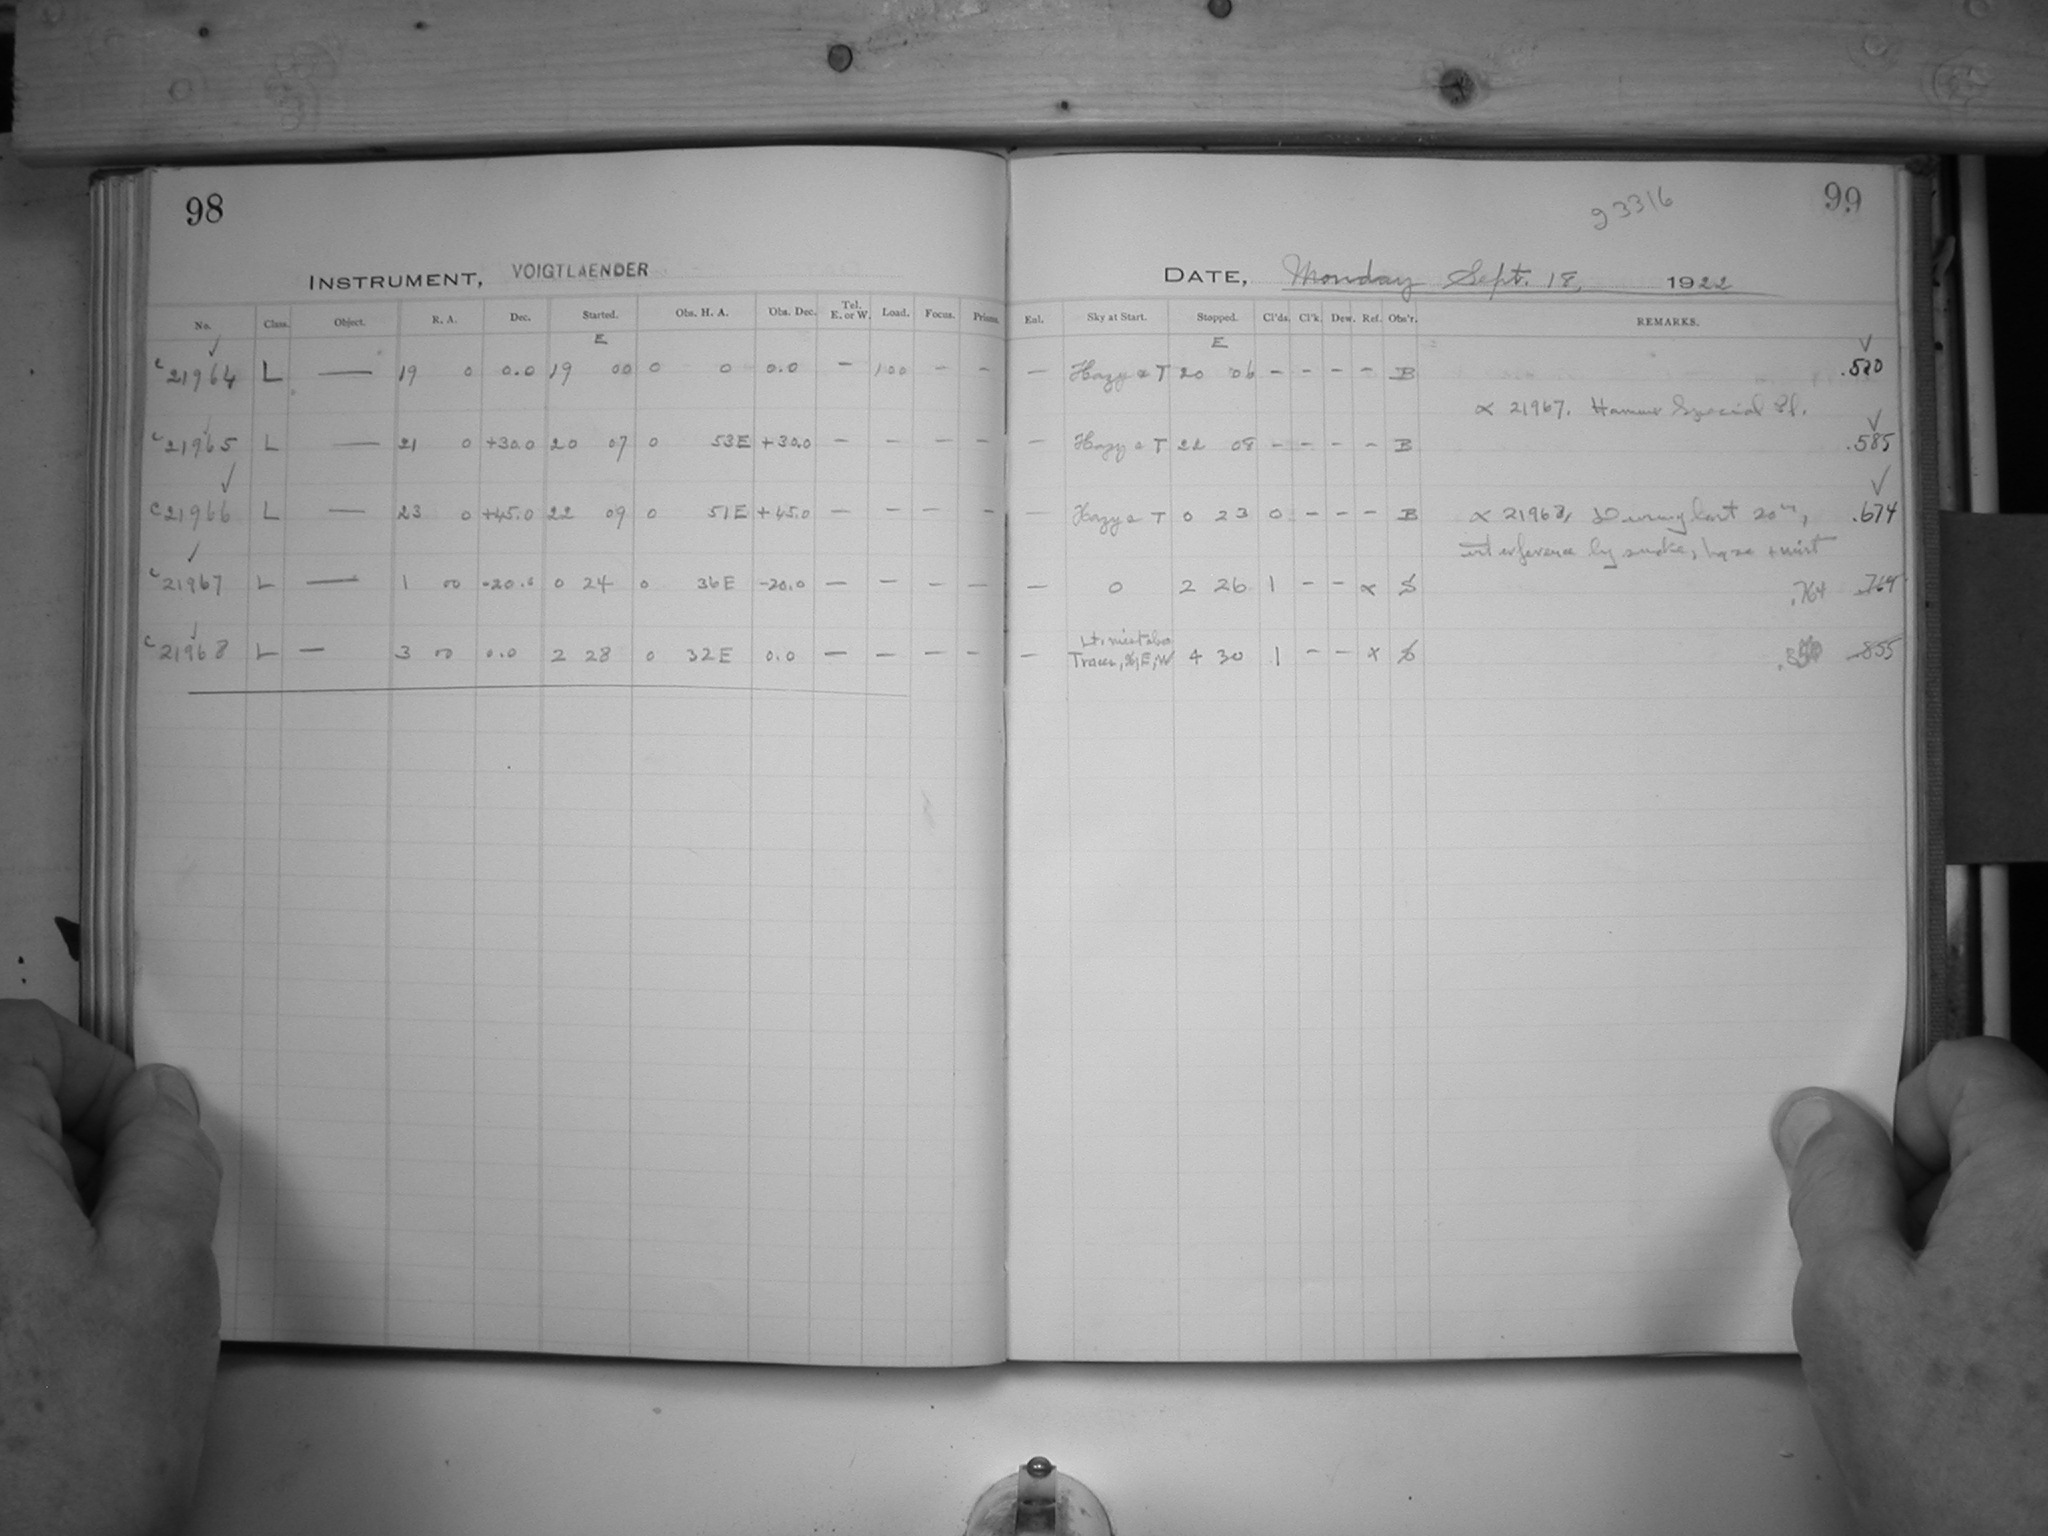 98
INSTRUMENT, VOIGTLAENDER
No. Class. Object. R. A. Dec. Started. Obs. H. A. Obs. Dec. Tel. E. or W. Load. Focus. Prisms.
E
c21964 L — 19 0 0.0 19 00 0 0 0.0 — 100 — —
c21965 L — 21 0 +30.0 20 07 0 53E +30.0 — — — —
c21966 L — 23 0 +45.0 22 09 0 51E +45.0 — — — —
c21967 L — 1 00 -20.0 0 24 0 36E -20.0 — — — —
c21968 L — 3 00 0.0 2 28 0 32E 0.0 — — — —
23316
99
DATE, Monday Sept. 18, 1922
Enl. Sky at Start. Stopped. Cl'ds. Cl'k. Dew. Ref. Obs'r. REMARKS.
E
— Hazy & T 20 06 — — — — B .520
∝ 21967. Hammer Special Pl.
— Hazy & T 22 08 — — — — B .585
— Hazy & T 0 23 0 — — — B ∝ 21968, During last 20m, .674
interference by smoke, haze + mist
— 0 2 26 1 — — x S .764 .764
Lt. mist also
— Traces, E, W 4 30 1 — — x S .855